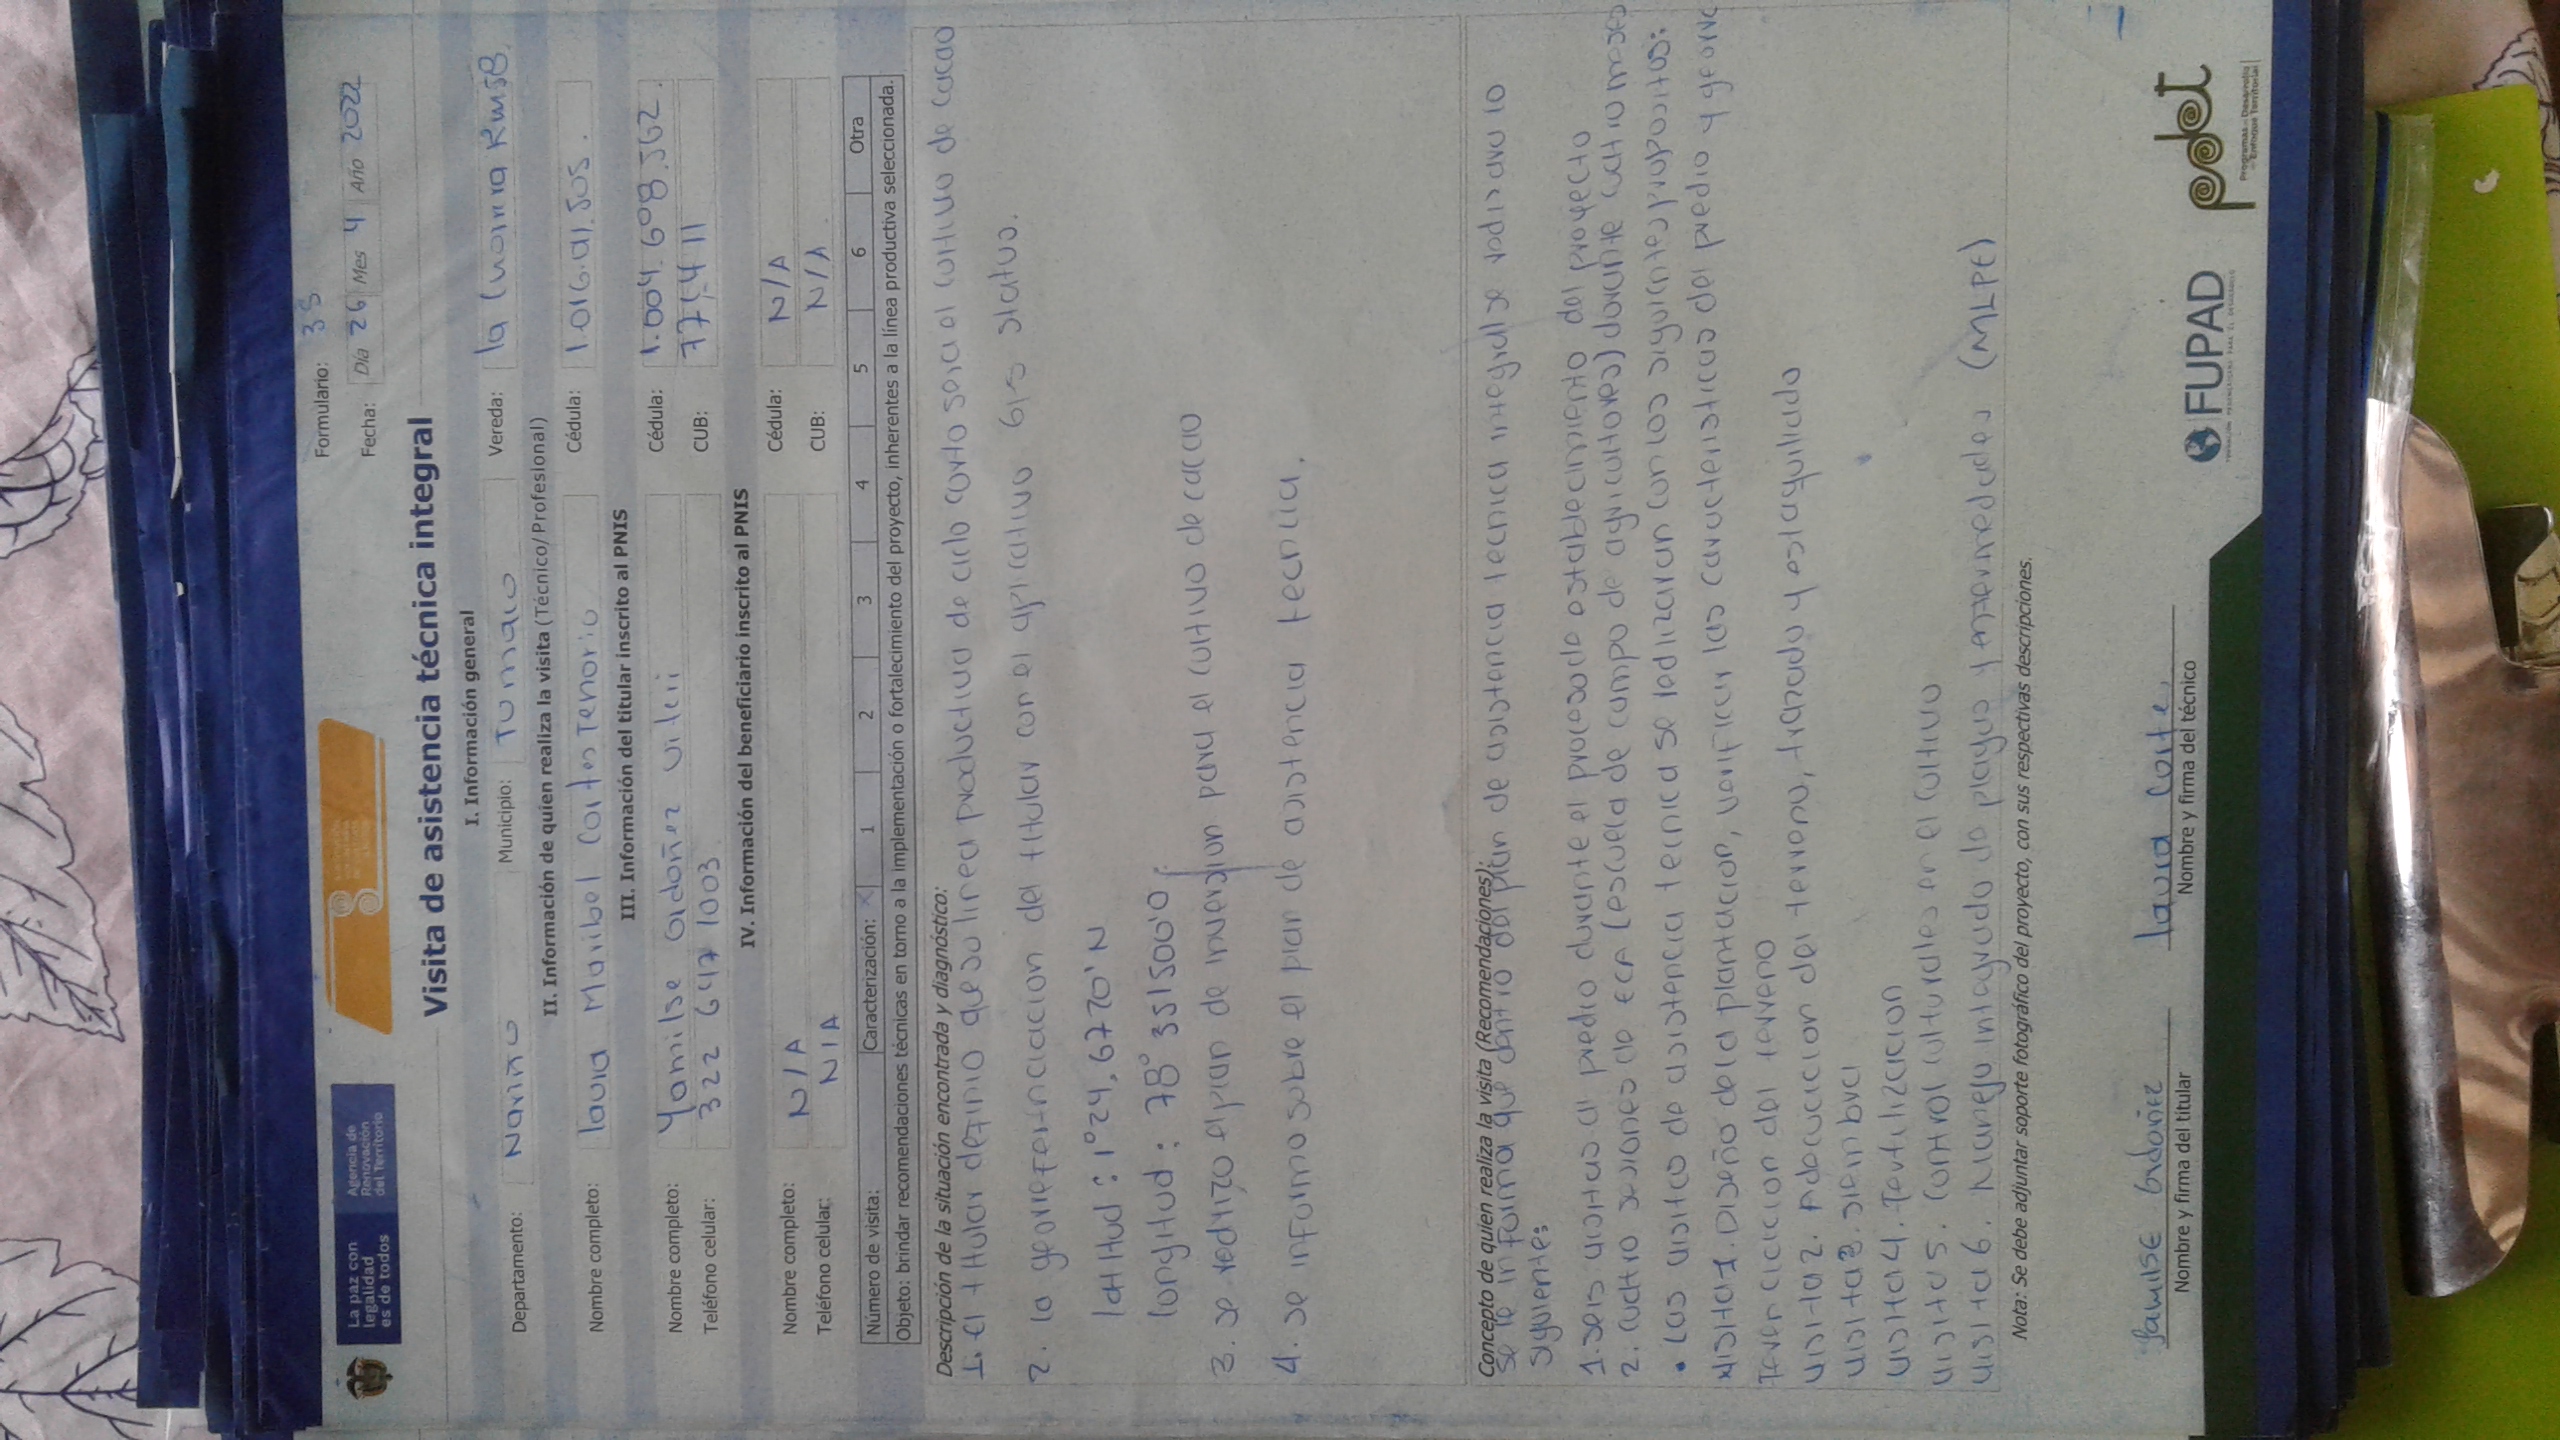 La paz con
legalidad
es de todos
Agencia de
Renovación
del Territorio
Formulario: 35
Fecha: Día 26 Mes 4 Año 2022
Visita de asistencia técnica integral
I. Información general
Departamento: Nariño Municipio: Tumaco Vereda: la
II. Información de quien realiza la visita (Técnico/Profesional)
Nombre completo: laura Maribel Cortes Tenorio Cédula: 1.016.01.505.
III. Información del titular inscrito al PNIS
Nombre completo: Yamilse ordoñez viteri Cédula: 1.004.608.562.
Teléfono celular: 322 647 1003 CUB:
IV. Información del beneficiario inscrito al PNIS
Nombre completo: N/A Cédula: N/A
Teléfono celular: N/A CUB: N/A
Número de visita: Caracterización: X 1 2 3 4 5 6 Otra
Objeto: brindar recomendaciones técnicas en torno a la implementación o fortalecimiento del proyecto, inherentes a la línea productiva seleccionada.
Descripción de la situación encontrada y diagnóstico:
1. el titular definio que su linea productiva de ciclo corto seria el cultivo de cacao
2. la georreferenciacion del titular con el aplicativo Gps status.
latitud: 1°24,6770'N
longitud: 78° 3515000'O
3. se realizo el plan de inversion para el cultivo de cacao
4. se informo sobre el plan de asistencia tecnica.
Concepto de quien realiza la visita (Recomendaciones):
se le informa que dentro del plan de asistencia tecnica integral se realizara lo
siguiente:
1. seis visitas al predio durante el proceso de establecimiento del proyecto
2. cuatro sesiones de ECA (escuela de campo de agricultores) durante cuatro meses
• Las visitas de asistencia tecnica se realizaran con los siguientes propositos:
visita 1. Diseño de la plantacion, verificar las caracteristicas del predio y
del terreno
visita 2. Adecuacion del terreno, trazado y
visita 3. siembra
visita 4. fertilizacion
visita 5. control culturales en el cultivo
visita 6. Manejo integrado de plagas y enfermedades (MIPE)
Nota: Se debe adjuntar soporte fotográfico del proyecto, con sus respectivas descripciones.
Yamilse Ordoñez laura Corte
Nombre y firma del titular Nombre y firma del técnico
FUPAD
pdet
Programas de Desarrollo
con Enfoque Territorial